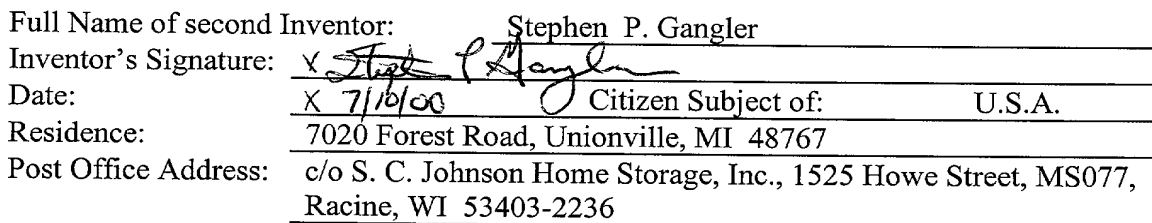 Full Name of second Inventor: Stephen P. Gangler
Inventor's Signature: X Stephen P Gangler
Date: X 7/10/00 Citizen Subject of: U.S.A.
Residence: 7020 Forest Road, Unionville, MI 48767
Post Office Address: c/o S. C. Johnson Home Storage, Inc., 1525 Howe Street, MS077,
Racine, WI 53403-2236